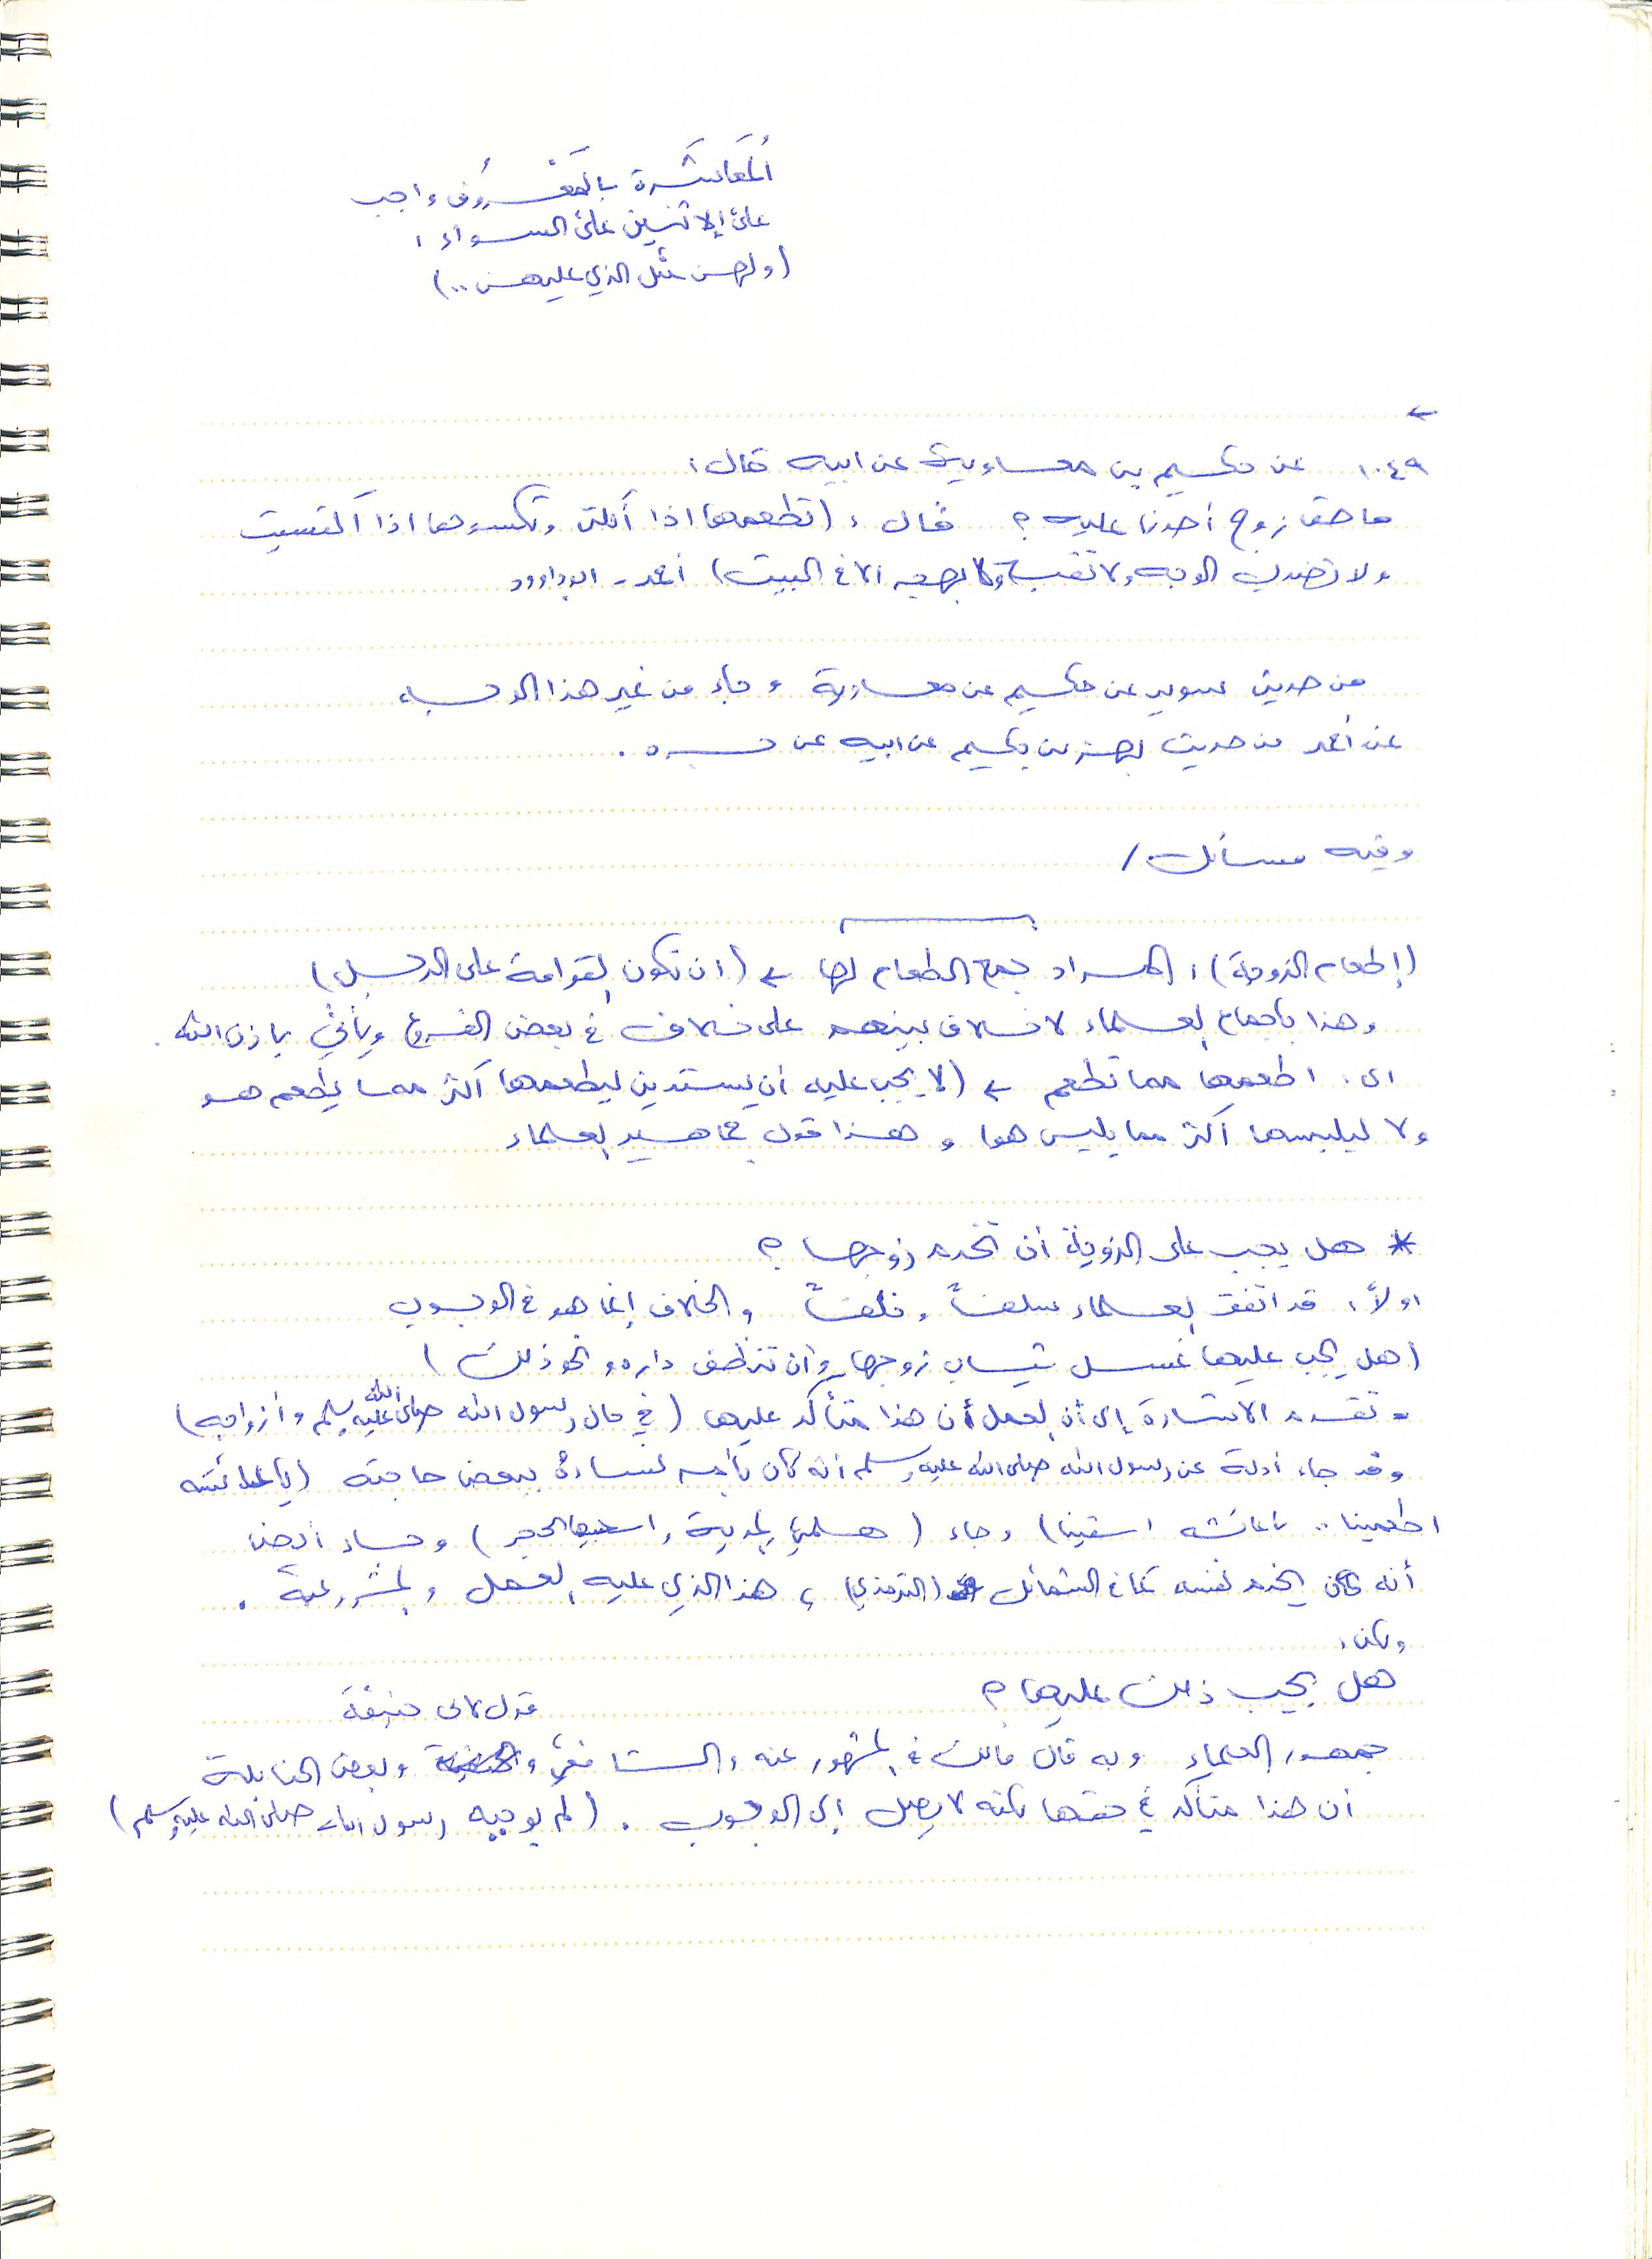 المُعَاشَرة بالمَعْرُوف واجب
على الاثنين على السواء ،
(ولهن مثل الذي عليهن ..)
←
١٠٤٩ عن حكيم بن معاوية عن ابيه قال :
ما حق زوج أحدنا عليه ؟ قال : (تطعمها اذا أكلت وتكسوها اذا اكتسيت
ولا تضرب الوجه ولا تقبح ولا تهجر الا في البيت) أحمد - ابوداوود
من حديث سويد عن حكيم عن معاوية وجاء من غير هذا الوجه
عن أحمد من حديث بهز بن حكيم عن ابيه عن جده .
وفيه مسائل /
(إطعام الزوجة) : المراد جمع الطعام لها ← (ان تكون القوامة على الرجل)
وهذا باجماع العلماء لا خلاف بينهم على خلاف في بعض الفروع ويأتي باذن الله .
اى : اطعمها مما تطعم ← (لا يجب عليه أن يستدين ليطعمها أكثر مما يطعم هو
ولا ليلبسها أكثر مما يلبس هو) وهذا قول جماهير العلماء
* هل يجب على الزوجة أن تخدم زوجها ؟
اولاً : قد اتفق العلماء سلفاً وخلفاً والخلاف إنما هو في الوجوب
(هل يجب عليها غسل ثياب زوجها وأن تنظف داره ونحو ذلك)
- تقدم الاشارة إلى أن العمل أن هذا متأكد عليها (في حال رسول الله صلى الله عليه وسلم وأزواجه)
وقد جاء أدلة عن رسول الله صلى الله عليه وسلم أنه كان يأمر نساءه ببعض حاجته (يا عائشه
اطعمينا .. ياعائشه اسقينا) وجاء (هلمي المدية واسحذيها بحجر) وجاء أيضا
أنه كان يخدم نفسه كما في الشمائل (الترمذي) ، هذا الذي عليه العمل والمشروعية .
ولكن :
هل يجب ذلك عليها ؟
قول لابي حنيفة
جمهور العلماء وبه قال مالك في المشهور عنه والشافعي و وبعض الحنابلة
أن هذا متأكد في حقها لكنه لا يصل إلى الوجوب . (لم يوجبه رسول الله صلى الله عليه وسلم)